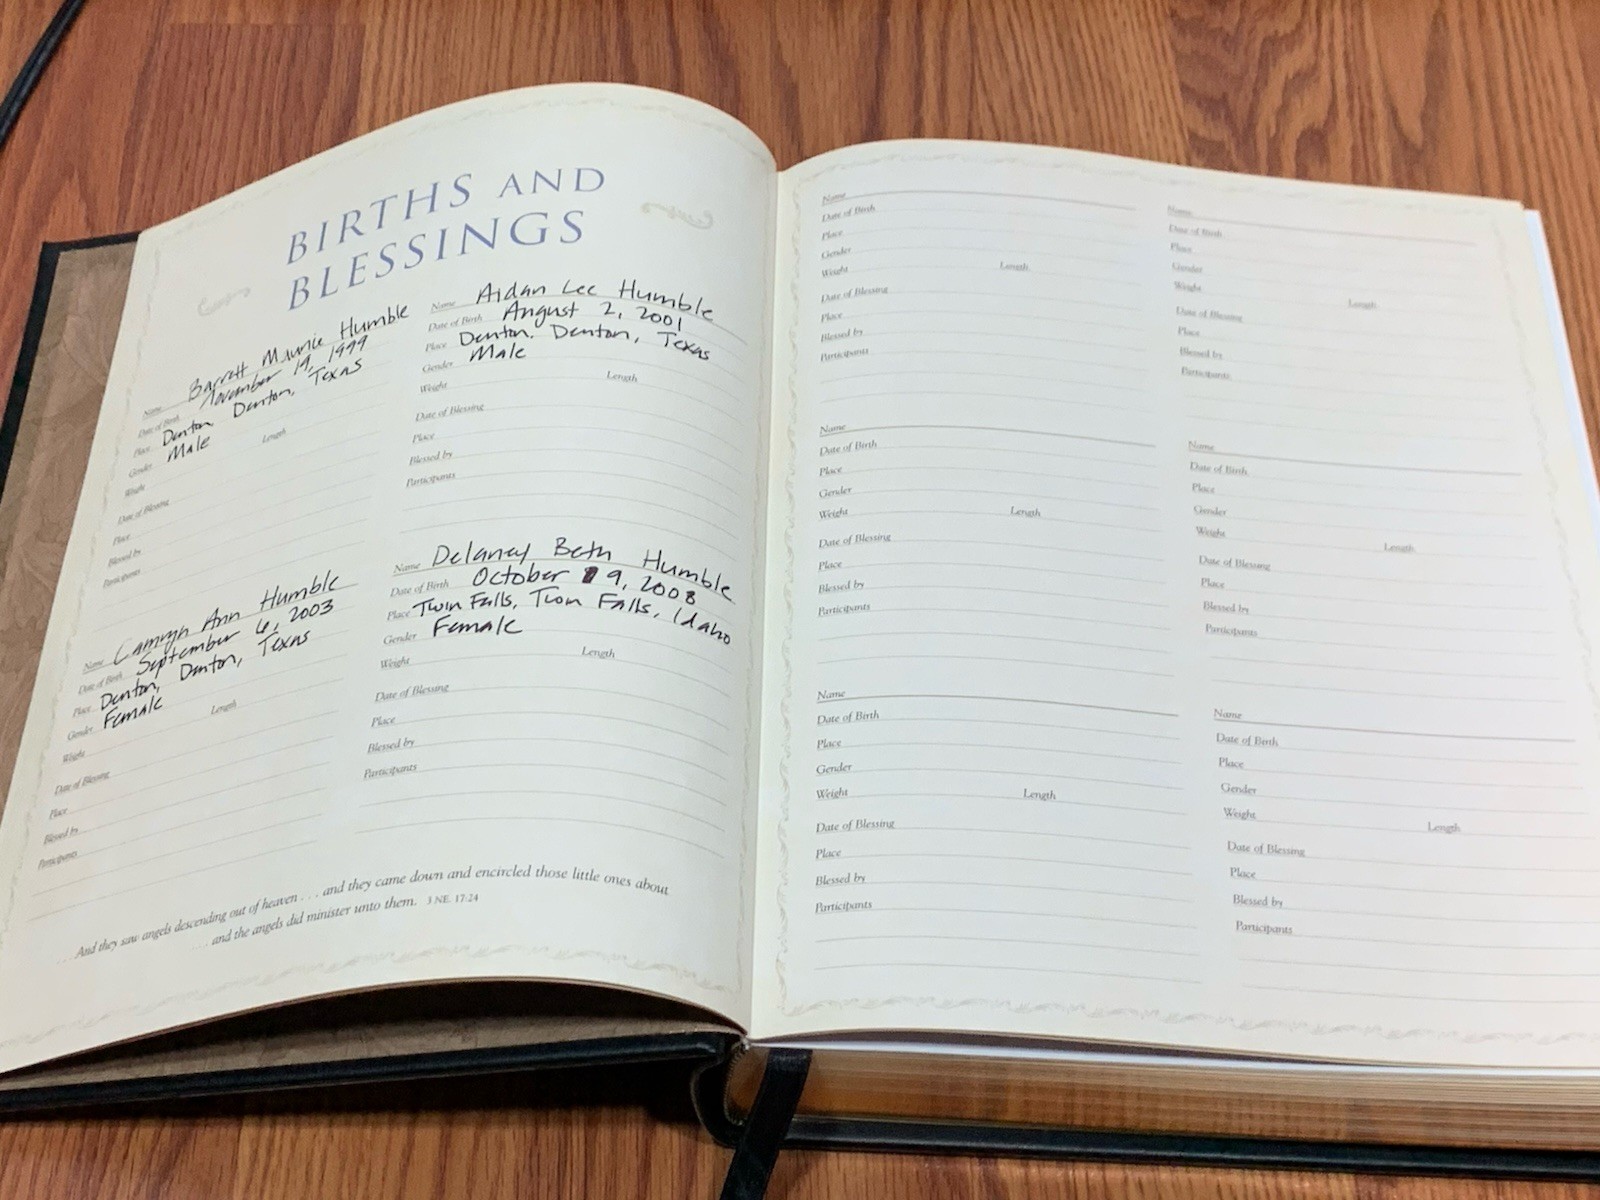 BIRTHS AND
BLESSINGS
Name Barrett Maurie Humble
Date of Birth November 19, 1999
Place Denton, Denton, Texas
Gender Male
Weight Length
Date of Blessing
Place
Blessed by
Participants
Name Aidan Lee Humble
Date of Birth August 2, 2001
Place Denton, Denton, Texas
Gender Male
Weight Length
Date of Blessing
Place
Blessed by
Participants
Name Camryn Ann Humble
Date of Birth September 6, 2003
Place Denton, Denton, Texas
Gender Female
Weight Length
Date of Blessing
Place
Blessed by
Participants
Name Delaney Beth Humble
Date of Birth October 9, 2008
Place Twin Falls, Twin Falls, Idaho
Gender Female
Weight Length
Date of Blessing
Place
Blessed by
Participants
. . . And they saw angels descending out of heaven . . . and they came down and encircled those little ones about
. . . and the angels did minister unto them. 3 NE. 17:24
Name
Date of Birth
Place
Gender
Weight Length
Date of Blessing
Place
Blessed by
Participants
Name
Date of Birth
Place
Gender
Weight Length
Date of Blessing
Place
Blessed by
Participants
Name
Date of Birth
Place
Gender
Weight Length
Date of Blessing
Place
Blessed by
Participants
Name
Date of Birth
Place
Gender
Weight Length
Date of Blessing
Place
Blessed by
Participants
Name
Date of Birth
Place
Gender
Weight Length
Date of Blessing
Place
Blessed by
Participants
Name
Date of Birth
Place
Gender
Weight Length
Date of Blessing
Place
Blessed by
Participants